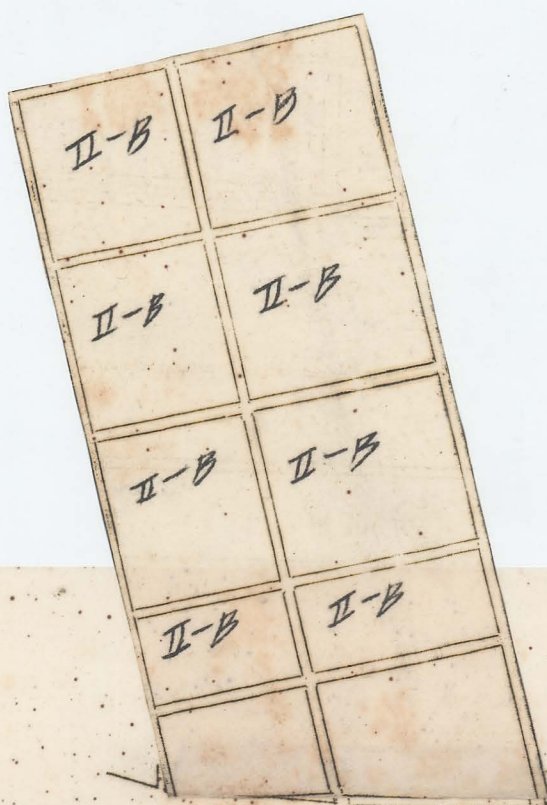 II-B II-B
II-B II-B
II-B II-B
II-B II-B